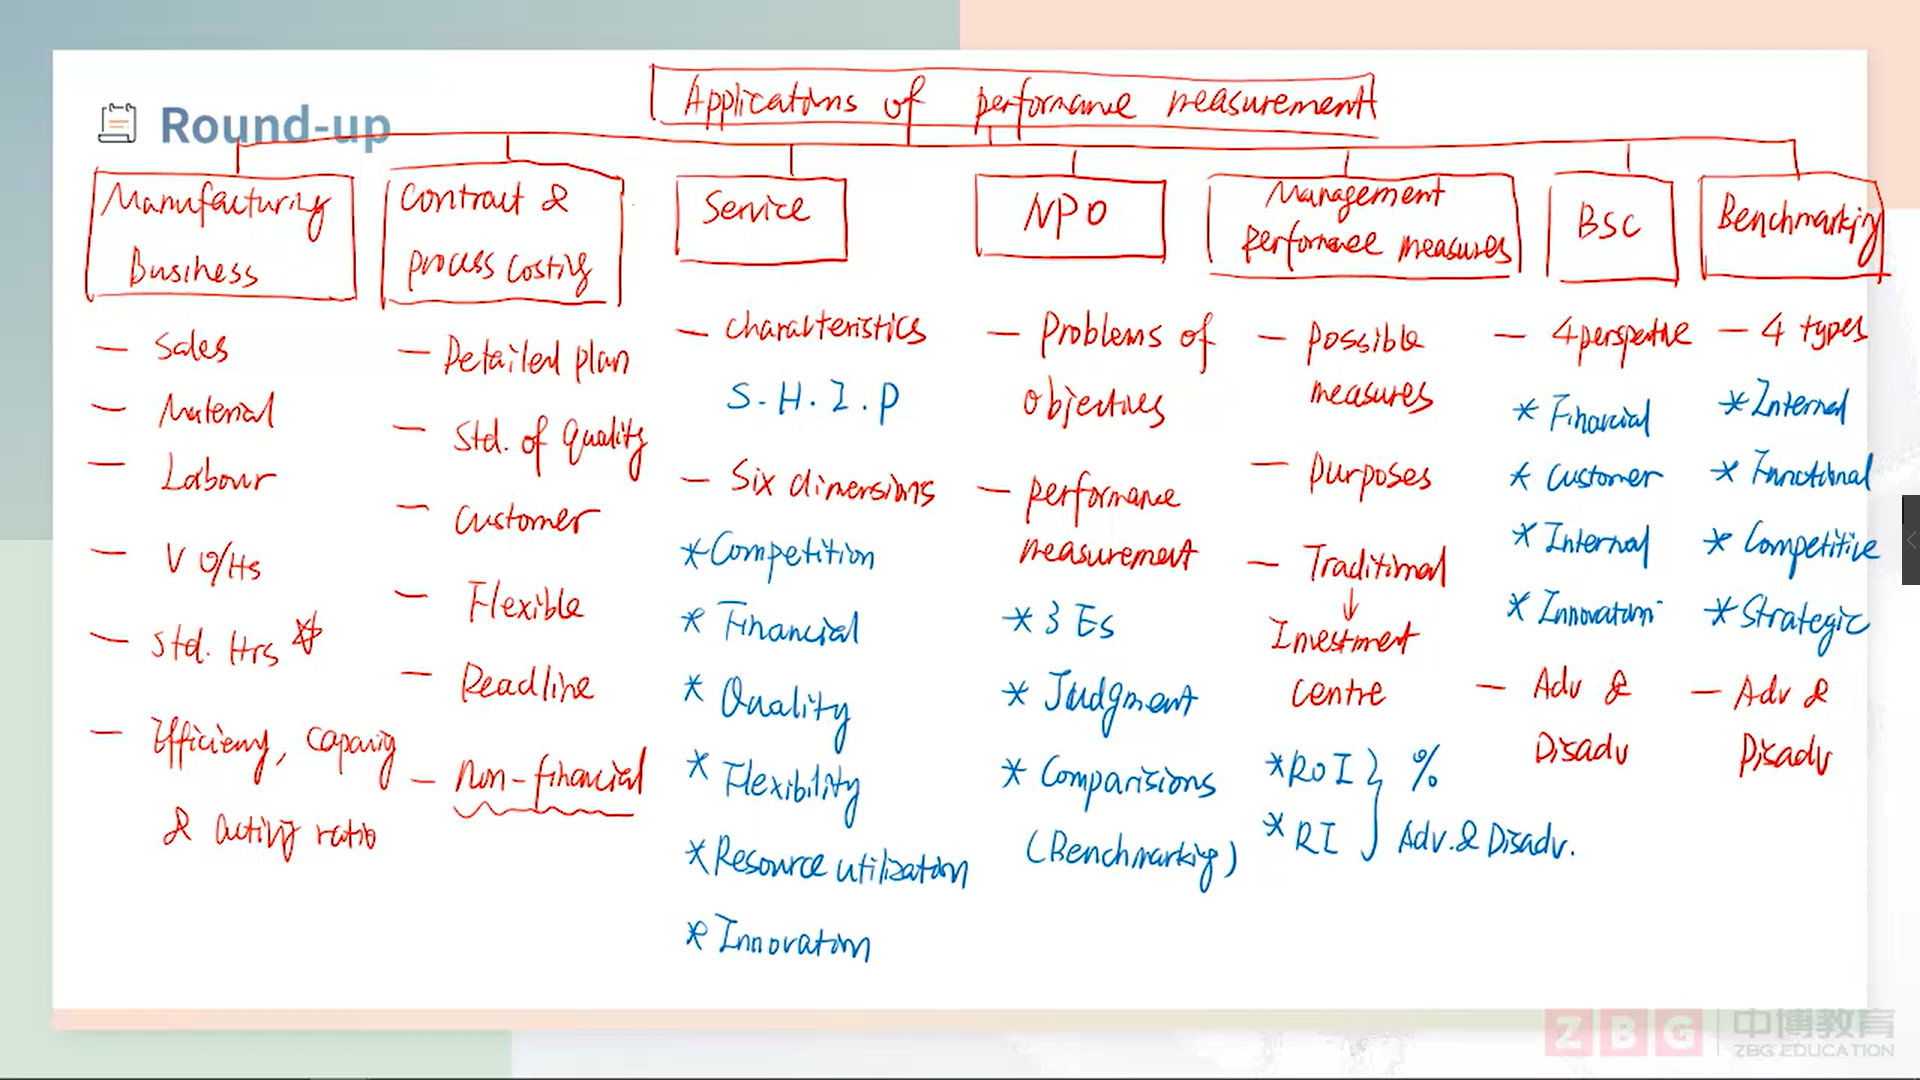 Round-up
Applications of performance measurement
Manufacturing
Business
- Sales
- Material
- Labour
- V O/Hs
- Std. Hrs ☆
- Efficiency, capacity
& activity ratio
Contract &
process costing
- Detailed plan
- Std. of Quality
- Customer
- Flexible
- Deadline
- Non-financial
Service
- characteristics
S.H.I.P
- Six dimensions
* Competition
* Financial
* Quality
* Flexibility
* Resource utilization
* Innovation
NPO
- Problems of
objectives
- performance
measurement
* 3 Es
* Judgment
* Comparisions
(Benchmarking)
Management
performance measures
- possible
measures
- purposes
- Traditional
↓
Investment
centre
* ROI } %
* RI } Adv. & Disadv.
BSC
- 4 perspective
* Financial
* Customer
* Internal
* Innovation
- Adv &
Disadv
Benchmarking
- 4 types
* Internal
* Functional
* Competitive
* Strategic
- Adv &
Disadv
ZBG 中博教育
ZBG EDUCATION